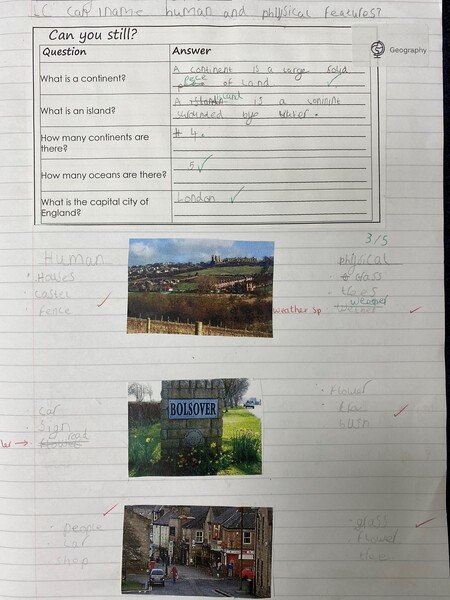 LC Can I name human and physical features?
Can you still?
Geography
Question Answer
What is a continent? A continent is a large solid
pece of Land
What is an island? A island is a
surounded bye water.
How many continents are
there? 4.
How many oceans are there? 5
What is the capital city of
England? London
3/5
Human physical
Houses grass
Castel trees
Fence weather
weather sp
BOLSOVER
car flower
sign tree
road bush
people grass
car flower
shop tree